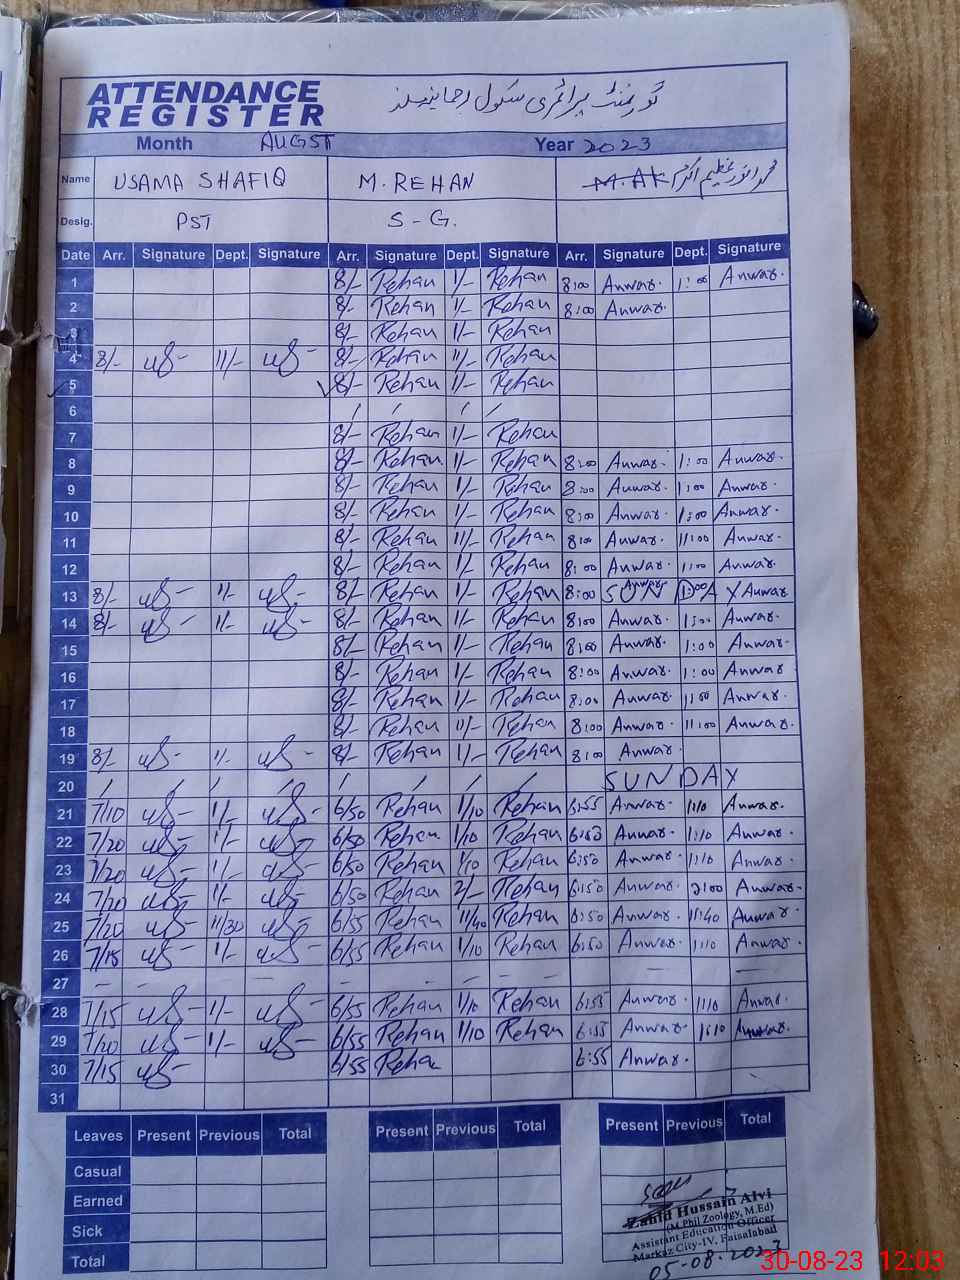 ATTENDANCE
REGISTER
گورنمنٹ پرائمری سکول
Month AUGST Year 2023
Name USAMA SHAFIQ M. REHAN M.AK محمد انور
Desig. PST S-G.
Date Arr. Signature Dept. Signature Arr. Signature Dept. Signature Arr. Signature Dept. Signature
1 8/- Rehan 1/- Rehan 8:00 Anwar. 1:00 Anwar.
2 8/- Rehan 1/- Rehan 8:00 Anwar.
3 8/- Rehan 1/- Rehan
4 8/- uS- 11/- uS- 8/- Rehan 11/- Rehan
5 8/- Rehan 1/- Rehan
6
7 8/- Rehan 1/- Rehan
8 8/- Rehan 1/- Rehan 8:00 Anwar. 1:00 Anwar.
9 8/- Rehan 1/- Rehan 8:00 Anwar. 1:00 Anwar.
10 8/- Rehan 1/- Rehan 8:00 Anwar. 1:00 Anwar.
11 8/- Rehan 11/- Rehan 8:00 Anwar. 11:00 Anwar.
12 8/- Rehan 1/- Rehan 8:00 Anwar. 1:00 Anwar.
13 8/- uS- 1/- uS- 8/- Rehan 1/- Rehan 8:00 SUNDAY Anwar 1:00 Anwar
14 8/- uS- 1/- uS- 8/- Rehan 1/- Rehan 8:00 Anwar. 1:00 Anwar.
15 8/- Rehan 1/- Rehan 8:00 Anwar. 1:00 Anwar.
16 8/- Rehan 1/- Rehan 8:00 Anwar. 1:00 Anwar
17 8/- Rehan 1/- Rehan 8:00 Anwar. 1:00 Anwar.
18 8/- Rehan 11/- Rehan 8:00 Anwar. 11:00 Anwar.
19 8/- uS- 1/- uS- 8/- Rehan 1/- Rehan 8:00 Anwar.
20 SUNDAY
21 7/10 uS- 1/- uS- 6/50 Rehan 1/10 Rehan 6:55 Anwar. 1:10 Anwar.
22 7/20 uS- 1/- uS- 6/50 Rehan 1/10 Rehan 6:53 Anwar. 1:10 Anwar.
23 7/20 uS- 1/- uS- 6/50 Rehan 1/10 Rehan 6:50 Anwar. 1:10 Anwar.
24 7/20 uS- 1/- uS- 6/50 Rehan 2/- Rehan 6:50 Anwar. 2:00 Anwar.
25 7/20 uS- 11/30 uS- 6/55 Rehan 11/40 Rehan 6:50 Anwar. 11:40 Anwar.
26 7/15 uS- 1/- uS- 6/55 Rehan 1/10 Rehan 6:50 Anwar. 1:10 Anwar.
27 - - - - - - - - - -
28 7/15 uS- 1/- uS- 6/55 Rehan 1/10 Rehan 6:55 Anwar. 1:10 Anwar.
29 7/20 uS- 1/- uS- 6/55 Rehan 1/10 Rehan 6:55 Anwar. 1:10 Anwar.
30 7/15 uS- 6/55 Rehan 6:55 Anwar.
31
Leaves Present Previous Total Present Previous Total Present Previous Total
Casual
Earned
Sick
Total
Zahid Hussain Alvi
(M.Phil Zoology, M.Ed)
Assistant Education Officer
Markaz City-IV, Faisalabad
05-08-2023
30-08-23 12:03